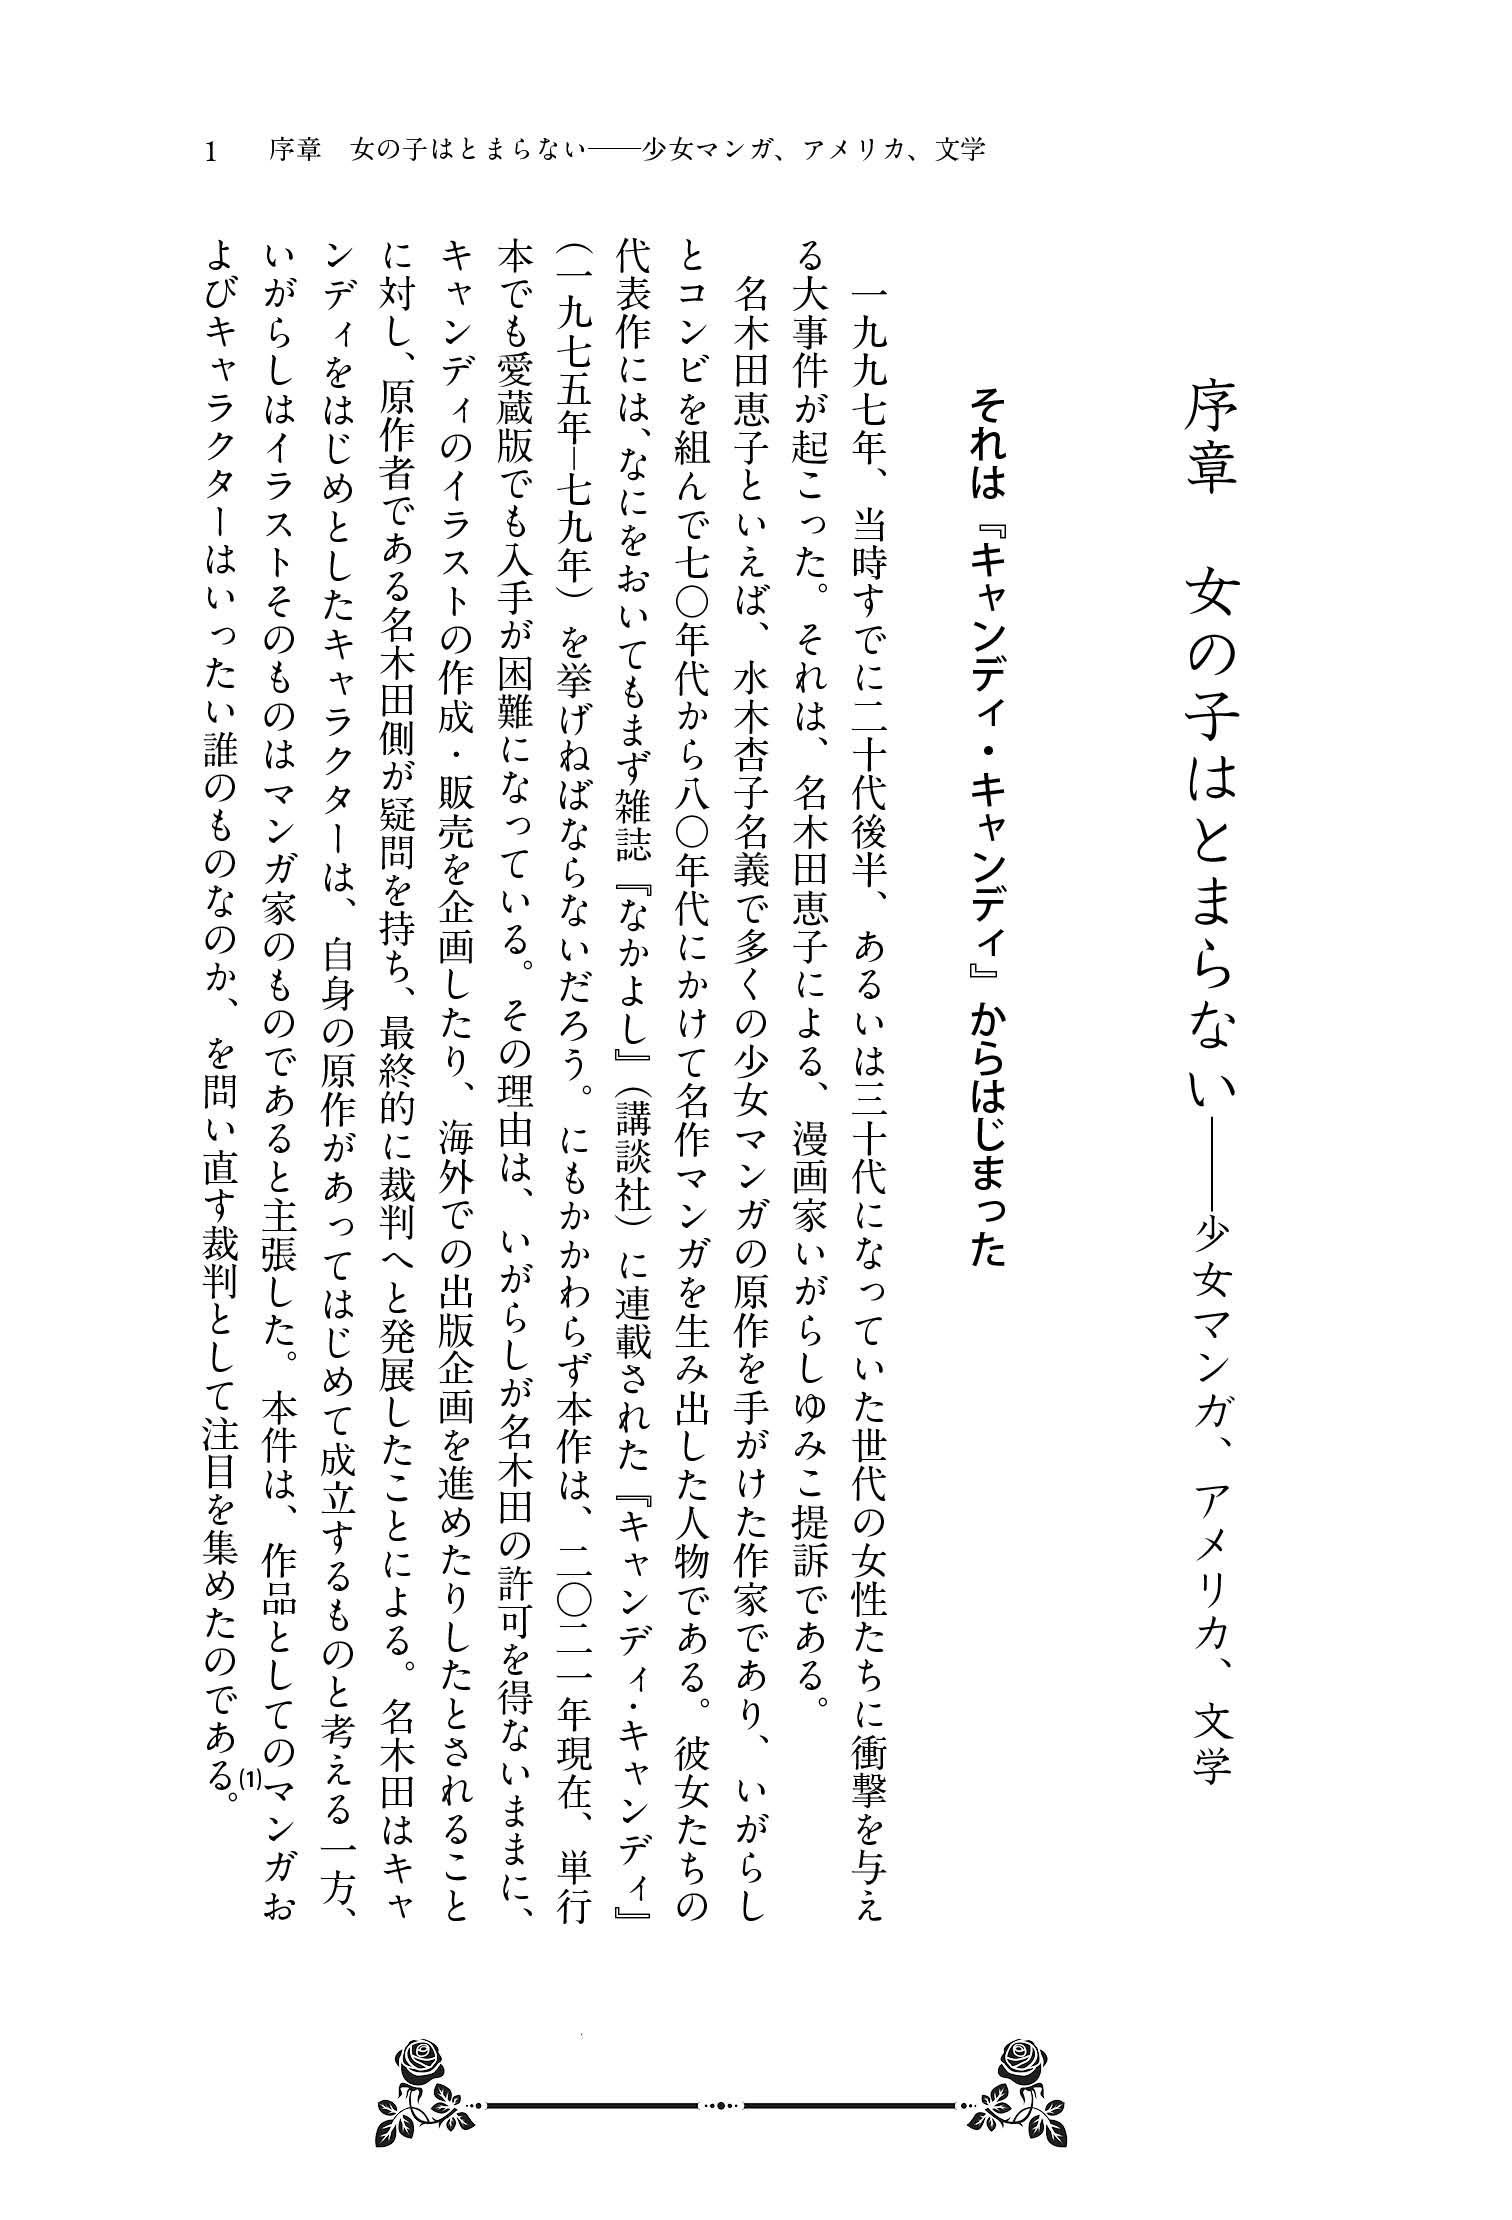 1 序章 女の子はとまらない――少女マンガ、アメリカ、文学
序章 女の子はとまらない――少女マンガ、アメリカ、文学
それは『キャンディ・キャンディ』からはじまった
一九九七年、当時すでに二十代後半、あるいは三十代になっていた世代の女性たちに衝撃を与え
る大事件が起こった。それは、名木田恵子による、漫画家いがらしゆみこ提訴である。
名木田恵子といえば、水木杏子名義で多くの少女マンガの原作を手がけた作家であり、いがらし
とコンビを組んで七〇年代から八〇年代にかけて名作マンガを生み出した人物である。彼女たちの
代表作には、なにをおいてもまず雑誌『なかよし』(講談社)に連載された『キャンディ・キャンディ』
(一九七五年–七九年)を挙げねばならないだろう。にもかかわらず本作は、二〇二一年現在、単行
本でも愛蔵版でも入手が困難になっている。その理由は、いがらしが名木田の許可を得ないままに、
キャンディのイラストの作成・販売を企画したり、海外での出版企画を進めたりしたとされること
に対し、原作者である名木田側が疑問を持ち、最終的に裁判へと発展したことによる。名木田はキャ
ンディをはじめとしたキャラクターは、自身の原作があってはじめて成立するものと考える一方、
いがらしはイラストそのものはマンガ家のものであると主張した。本件は、作品としてのマンガお
よびキャラクターはいったい誰のものなのか、を問い直す裁判として注目を集めたのである。(1)